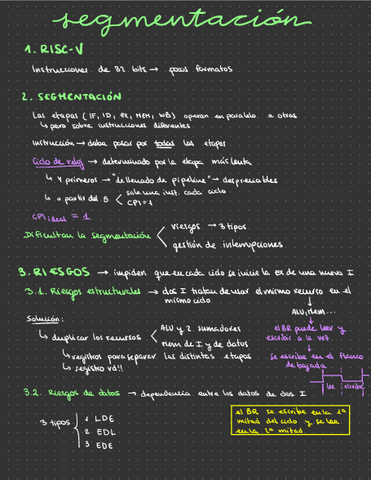 segmentación
1. RISC-V
Instrucciones de 32 bits → pocos formatos
2. SEGMENTACIÓN
Las etapas (IF, ID, EX, MEM, WB) operan en paralelo a otras
↳ pero sobre instrucciones diferentes
Instrucción → debe pasar por todas las etapas
Ciclo de reloj → determinado por la etapa más lenta
↳ 4 primeros → "de llenado de pipeline" → despreciables
↳ a partir del 5 < sale una inst. cada ciclo
CPI = 1
CPI ideal = 1
Dificultan la segmentación < riesgos → 3 tipos
gestión de interrupciones
3. RIESGOS → impiden que en cada ciclo se inicie la ex de una nueva I
3.1. Riesgos estructurales → dos I tratan de usar el mismo recurso en el
mismo ciclo
↳ ALU, Mem...
Solución:
↳ duplicar los recursos < ALU y 2 sumadores
Mem de I y de datos
↳ registros para separar las distintas etapas
↳ registro vd!!
el BR puede leer y
escribir a la vez
↳ Se escribe en el flanco
de bajada
lee escribe
3.2. Riesgos de datos → dependencia entre los datos de dos I
3 tipos
1 LDE
2 EDL
3 EDE
el BR se escribe en la 1ª
mitad del ciclo y se lee
en la 2ª mitad